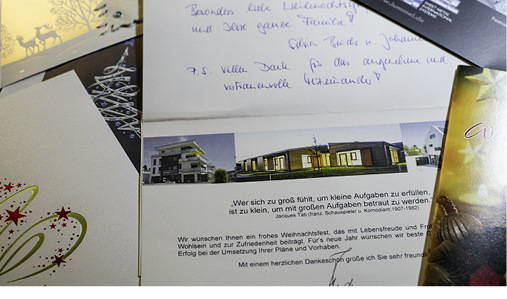 Besonders liebe Weihnachts
und Ihre ganze Familie!
Silvia
P.S. Vielen Dank für das angenehme und
vertrauensvolle Miteinander!
„Wer sich zu groß fühlt, um kleine Aufgaben zu erfüllen,
ist zu klein, um mit großen Aufgaben betraut zu werden."
Jacques Tati (franz. Schauspieler u. Komödiant, 1907-1982)
Wir wünschen Ihnen ein frohes Weihnachtsfest, das mit Lebensfreude und Fro
Wohlsein und zur Zufriedenheit beiträgt. Für's neue Jahr wünschen wir beste E
Erfolg bei der Umsetzung Ihrer Pläne und Vorhaben.
Mit einem herzlichen Dankeschön grüße ich Sie sehr freund